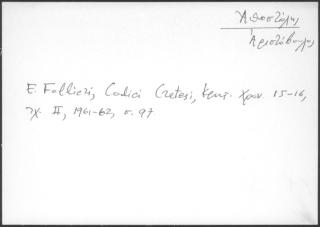 Ἀποστόλης
Ἀριστόβουλος
E. Follieri, Codici Cretesi, Κρητ. Χρον. 15-16,
τχ. II, 1961-62, σ. 97